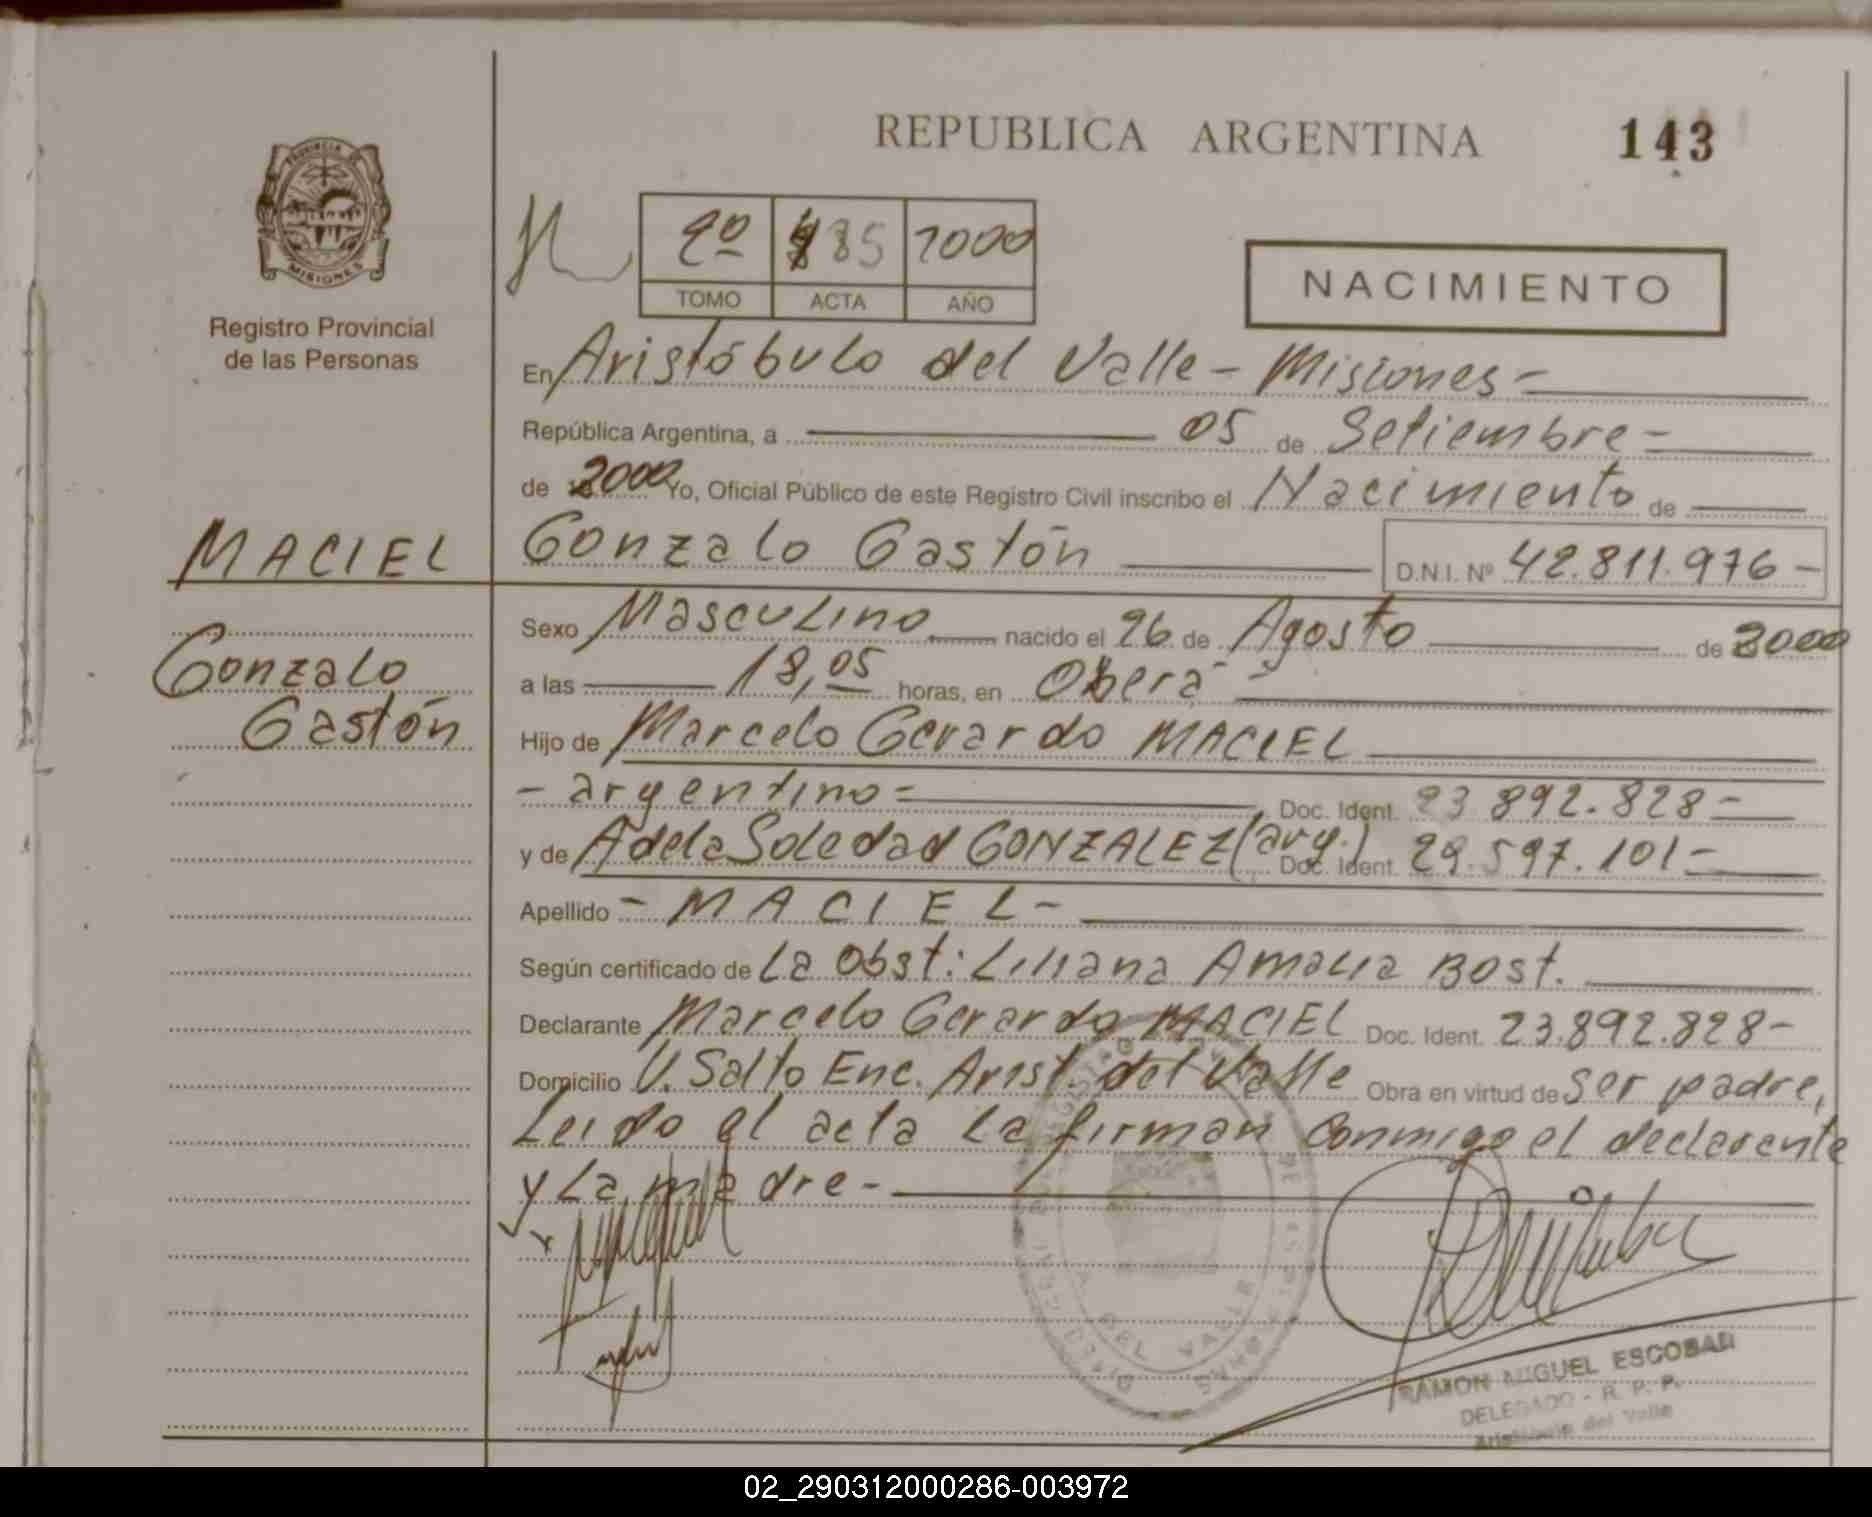 REPUBLICA ARGENTINA
143
PROVINCIA DE
MISIONES
Registro Provincial
de las Personas
2º 285 2000
TOMO ACTA AÑO
NACIMIENTO
En Aristóbulo del Valle - Misiones -
República Argentina, a 05 de Setiembre -
de 2000 Yo, Oficial Público de este Registro Civil inscribo el Nacimiento de
MACIEL Gonzalo Gastón D.N.I. Nº 42.811.976 -
Gonzalo
Gastón
Sexo Masculino nacido el 26 de Agosto de 2000
a las 18,05 horas, en Oberá
Hijo de Marcelo Gerardo MACIEL
- argentino - Doc. Ident. 23.892.828 -
y de Adela Soledad GONZALEZ (arg.) Doc. Ident. 29.597.101 -
Apellido - MACIEL -
Según certificado de La Obst: Liliana Amalia Bost.
Declarante Marcelo Gerardo MACIEL Doc. Ident. 23.892.828 -
Domicilio V. Salto Enc. Arist. del Valle Obra en virtud de ser padre,
Leido el acta la firman conmigo el declarante
y La madre -
DEL VALLE
RAMON MIGUEL ESCOBAR
DELEGADO - R. P. P.
Aristóbulo del Valle
02_290312000286-003972